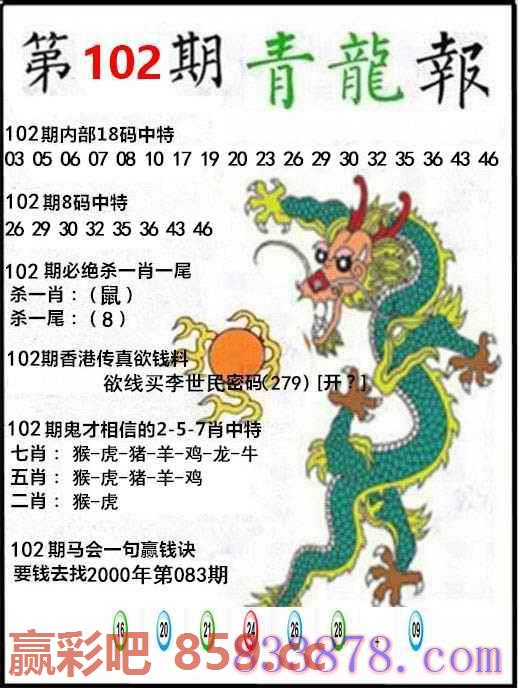 第102期青龍報
102期内部18码中特
03 05 06 07 08 10 17 19 20 23 26 29 30 32 35 36 43 46
102期8码中特
26 29 30 32 35 36 43 46
102期必绝杀一肖一尾
杀一肖：（鼠）
杀一尾：（8）
102期香港传真欲钱料
欲线买李世民密码(279) [开？]
102期鬼才相信的2-5-7肖中特
七肖： 猴-虎-猪-羊-鸡-龙-牛
五肖： 猴-虎-猪-羊-鸡
二肖： 猴-虎
102期马会一句赢钱诀
要钱去找2000年第083期
16 20 21 24 26 28 + 09
赢彩吧 859.cc
833878.com